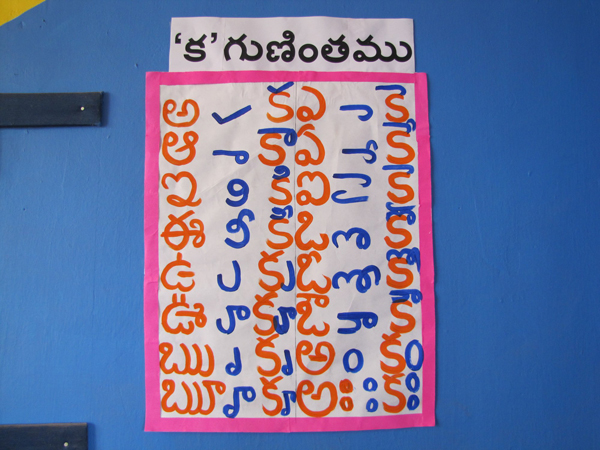 ‘క’ గుణింతము
అ ✓ క ఎ ె కె
ఆ ా కా ఏ ే కే
ఇ ి కి ఐ ై కై
ఈ ీ కీ ఒ ొ కొ
ఉ ు కు ఓ ో కో
ఊ ూ కూ ఔ ౌ కౌ
ఋ ృ కృ అ ం కం
ౠ ౄ కౄ అః ః కః